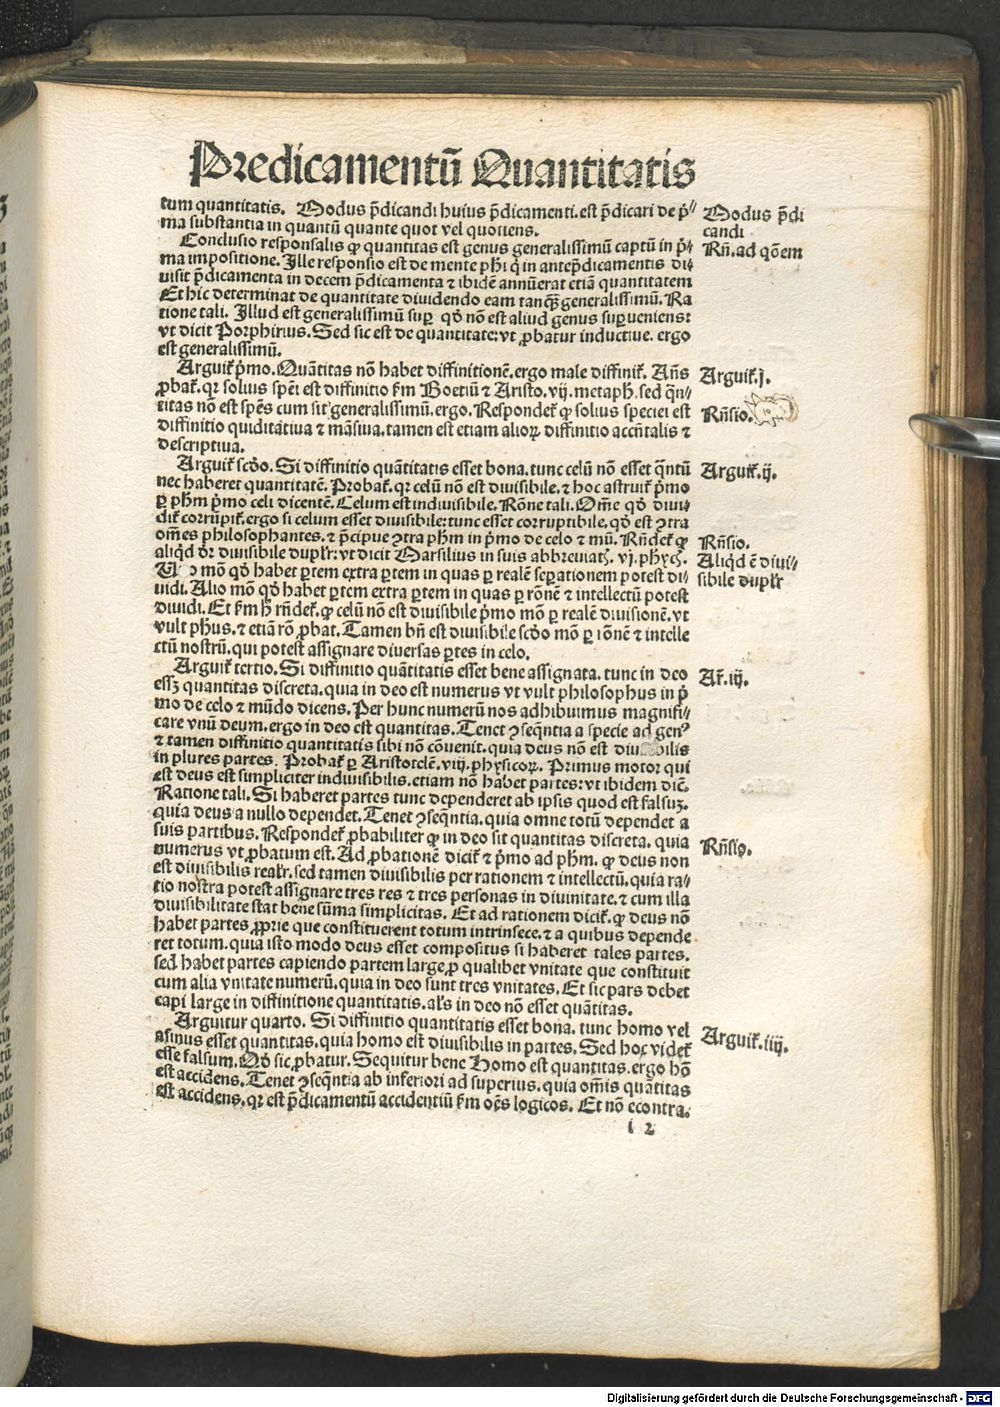 Predicamentū Quantitatis
tum quantitatis. Modus p̄dicandi huius p̄dicamenti.est p̄dicari de p̄⸗
ma substantia in quantū quante quot vel quotiens.
Modus p̄di
candi
Conclusio responsalis ꝙ quantitas est genus generalissimū captū in p̄⸗
ma impositione. Ille responsio est de mente ph̄i q̄ in antep̄dicamentis di⸗
uisit p̄dicamenta in decem p̄dicamenta ⁊ ibidē annūerat etiā quantitatem
Et hic determinat de quantitate diuidendo eam tanꝙ̄ generalissimū. Ra
tione tali. Illud est generalissimū supꝛ qđ nō est aliud genus supꝛueniens:
vt dicit Porphirius. Sed sic est de quantitate: vt ꝓbatur inductiue. ergo
est generalissimū.
Rñ. ad qōem
Arguit̄ p̄mo. Quātitas nō habet diffinitionē. ergo male diffinit̄. Añs
ꝓbat̄. qꝛ solius spēi est diffinitio ẜm Boetiū ⁊ Aristo. vij. metaph̄. sed q̄n⸗
titas nō est spēs cum sit generalissimū. ergo. Respondet̄ ꝙ solius speciei est
diffinitio quiditatiua ⁊ mās̄iua. tamen est etiam alioꝝ diffinitio accn̄talis ⁊
descriptiua.
Arguit̄.j.
Rñsio.
Arguit̄ scđo. Si diffinitio quātitatis esset bona. tunc celū nō esset q̄ntū
nec haberet quantitatē. Probat̄. qꝛ celū nō est diuisibile. ⁊ hoc astruit̄ p̄mo
ꝑ ph̄m p̄mo celi dicentē. Celum est indiuisibile. Rōne tali. Om̄e qđ diui⸗
dit̄ corrūpit̄. ergo si celum esset diuisibile: tunc esset corruptibile. qđ est ꝯtra
om̄es philosophantes. ⁊ p̄cipue ꝯtra ph̄m in p̄mo de celo ⁊ mū. Rñdet̄ ꝙ
aliqđ dꝛ̄ diuisibile duplr̄: vt dicit Marsilius in suis abbreuiatꝭ. vj. phycꝭ.
mō qđ habet ꝑtem extra ꝑtem in quas ꝑ realē seꝑationem potest di⸗
uidi. Alio mō qđ habet ꝑtem extra ꝑtem in quas ꝑ rōnē ⁊ intellectū potest
diuidi. Et ẜm h̄ rñdet̄. ꝙ celū nō est diuisibile p̄mo mō ꝑ realē diuisionē. vt
vult ph̄us. ⁊ etiā rō ꝓbat. Tamen bñ est diuisibile scđo mō ꝑ rōnē ⁊ intelle
ctū nostrū. qui potest assignare diuersas ꝑtes in celo.
Arguit̄.ij.
Rñsio.
Aliqđ ē diui⸗
sibile duplr̄
Arguit̄ tertio. Si diffinitio quātitatis esset bene assignata. tunc in deo
essꝫ quantitas discreta. quia in deo est numerus vt vult philosophus in p̄
mo de celo ⁊ mūdo dicens. Per hunc numerū nos adhibuimus magnifi⸗
care vnū deum. ergo in deo est quantitas. Tenet ꝯseq̄ntia a specie ad genꝰ
⁊ tamen diffinitio quantitatis sibi nō cōuenit. quia deus nō est diuisibilis
in plures partes. Probat̄ ꝑ Aristotelē. viij. physicoꝝ. Primus motoꝛ qui
est deus est simpliciter indiuisibilis. etiam nō habet partes: vt ibidem diē.
Ratione tali. Si haberet partes tunc dependeret ab ipsis quod est falsuꝫ.
quia deus a nullo dependet. Tenet ꝯseq̄ntia. quia omne totū dependet a
suis partibus. Respondet̄ ꝓbabiliter ꝙ in deo sit quantitas discreta. quia
numerus vt ꝓbatum est. Ad ꝓbationē dicit̄ ⁊ p̄mo ad ph̄m. ꝙ deus non
est diuisibilis realr̄. sed tamen diuisibilis per rationem ⁊ intellectū. quia ra⸗
tio nostra potest assignare tres res ⁊ tres personas in diuinitate. ⁊ cum illa
diuisibilitate stat bene sūma simplicitas. Et ad rationem dicit̄. ꝙ deus nō
habet partes ꝓprie que constituerent totum intrinsece. ⁊ a quibus depende
ret totum. quia isto modo deus esset compositus si haberet tales partes.
sed habet partes capiendo partem large ꝓ qualibet vnitate que constituit
cum alia vnitate numerū. quia in deo sunt tres vnitates. Et sic pars debet
capi large in diffinitione quantitatis. als̄ in deo nō esset quātitas.
Ar̄.iij.
Rñsio.
Arguitur quarto. Si diffinitio quantitatis esset bona. tunc homo vel
asinus esset quantitas. quia homo est diuisibilis in partes. Sed hoc videt̄
esse falsum. Qđ sic ꝓbatur. Sequitur bene Homo est quantitas. ergo hō
est accidens. Tenet ꝯseq̄ntia ab inferiori ad superius. quia om̄is quātitas
est accidens. qꝛ est p̄dicamentū accidentiū ẜm oēs logicos. Et nō econtra.
Arguit̄.iiij.
i 2
Digitalisierung gefördert durch die Deutsche Forschungsgemeinschaft - DFG